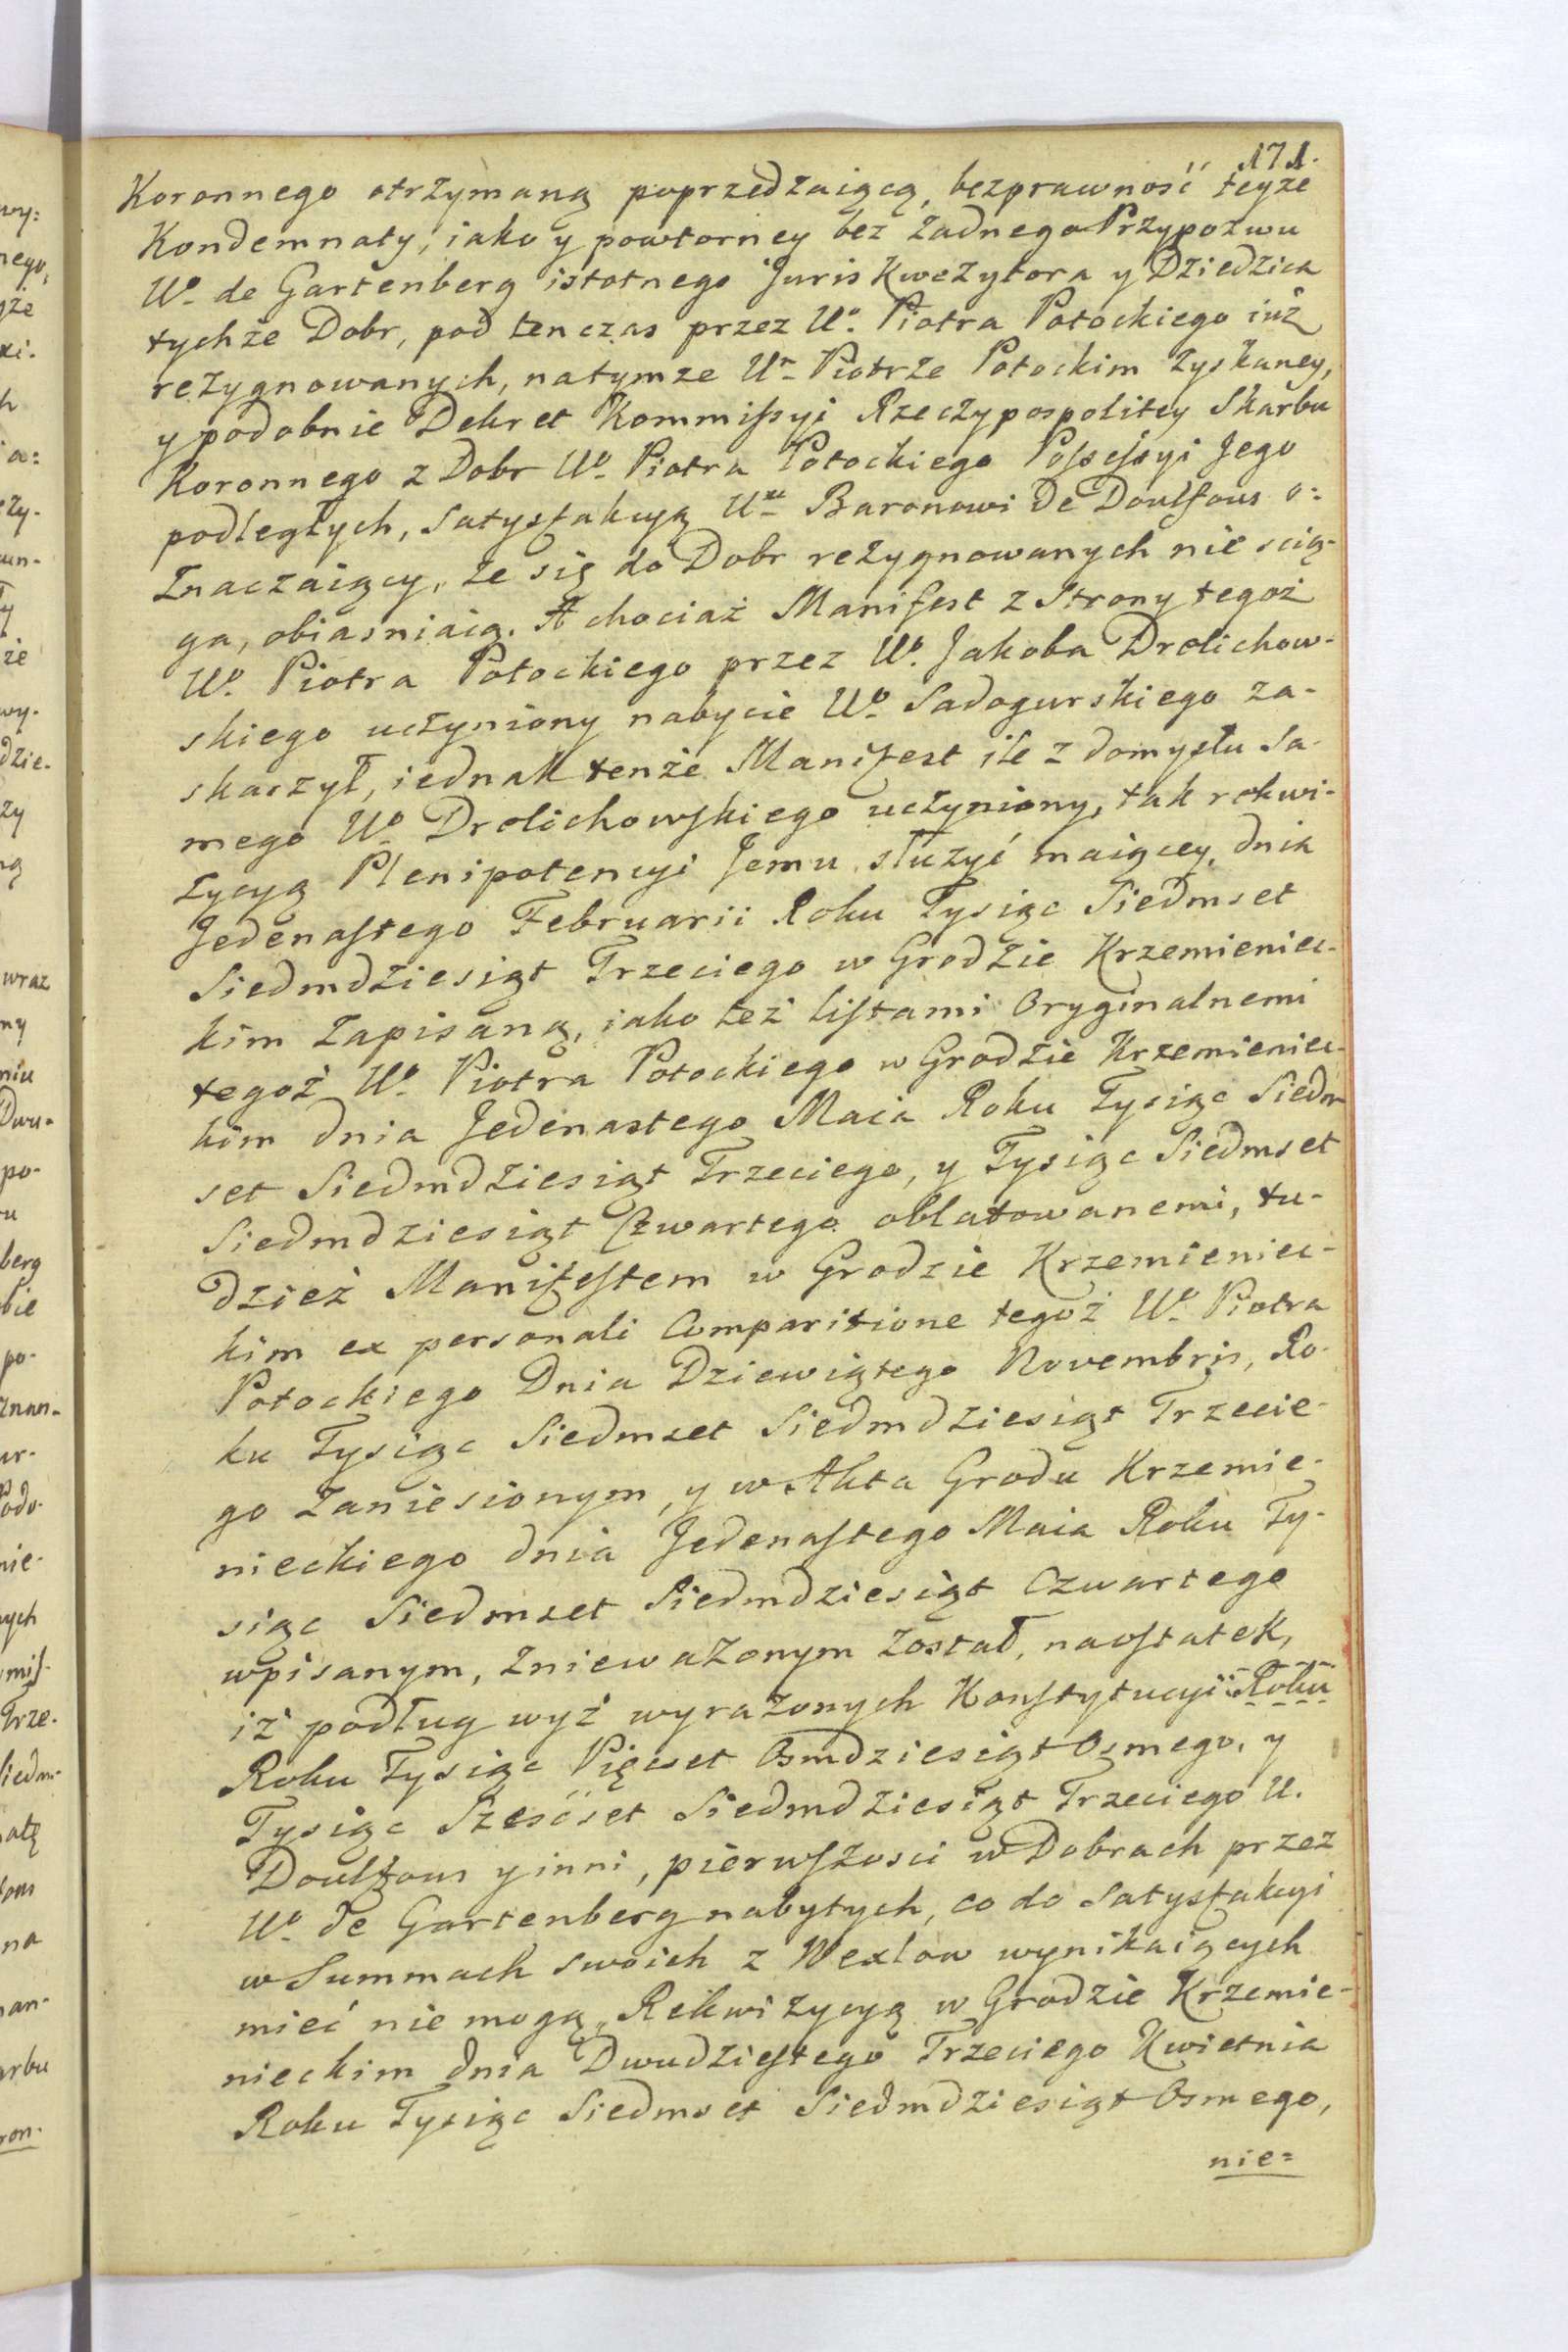 171.
Koronnego otrzymaną poprzedzaiącą, bezprawność teyże
Kondemnaty, iako y powtorney bez żadnego Przypozwu
Uo de Gartenberg istotnego Juris Kwezytora y Dziedzica
tychże Dobr, pod tenczas przez Uo Piotra Potockiego iuż
rezygnowanych, natymże Ur Piotrze Potockim zyskaney,
y podobnie Dekret Kommissyi Rzeczypospolitey Skarbu
Koronnego z Dobr Uo Piotra Potockiego Possessyi Jego
podległych, satysfakcyą Uu Baronowi De Doulfous o:
znaczaiący, że się do Dobr rezygnowanych nie ścią-
ga, obiasniaią. A chociaż Manifest z Strony tegoż
Uo Piotra Potockiego przez Uo Jakoba Drolichow-
skiego uczyniony nabycie Uo Sadogurskiego za-
skarzył, iednak tenże Manifest ile z domysłu sa-
mego Uo Drolichowskiego uczyniony, tak rekwi-
zycyą Plenipotencyi Jemu służyć maiącey, dnia
Jedenastego Februarii Roku Tysiąc Siedmset
Siedmdziesiąt Trzeciego w Grodzie Krzemieniec-
kim zapisaną, iako też listami Oryginalnemi
tegoż Uo Piotra Potockiego w Grodzie Krzemieniec-
kim dnia Jedenastego Maia Roku Tysiąc Siedm
set Siedmdziesiąt Trzeciego, y Tysiąc Siedmset
Siedmdziesiąt Czwartego oblatowanemi, tu-
dzież Manifestem w Grodzie Krzemieniec-
kim ex personali Comparitione tegoż Uo Piotra
Potockiego Dnia Dziewiątego Novembris, Ro-
ku Tysiąc Siedmset Siedmdziesiąt Trzecie-
go zaniesionym, y w Akta Grodu Krzemie-
nieckiego dnia Jedenastego Maia Roku Ty-
siąc Siedmset Siedmdziesiąt Czwartego
wpisanym, znieważonym został, naostatek,
iż podług wyż wyrażonych Konstytucyi Roku
Roku Tysiąc Pięćset Osmdziesiąt Osmego, y
Tysiąc Sześćset Siedmdziesiąt Trzeciego U.
Doulfous y inni, pierwszości w Dobrach przez
Uo De Gartenberg nabytych, co do Satysfakcyi
w Summach swoich z Wexlow wynikaiących
mieć nie mogą, Rekwizycyą w Grodzie Krzemie-
nieckim dnia Dwudziestego Trzeciego Kwietnia
Roku Tysiąc Siedmset Siedmdziesiąt Osmego,
nie=